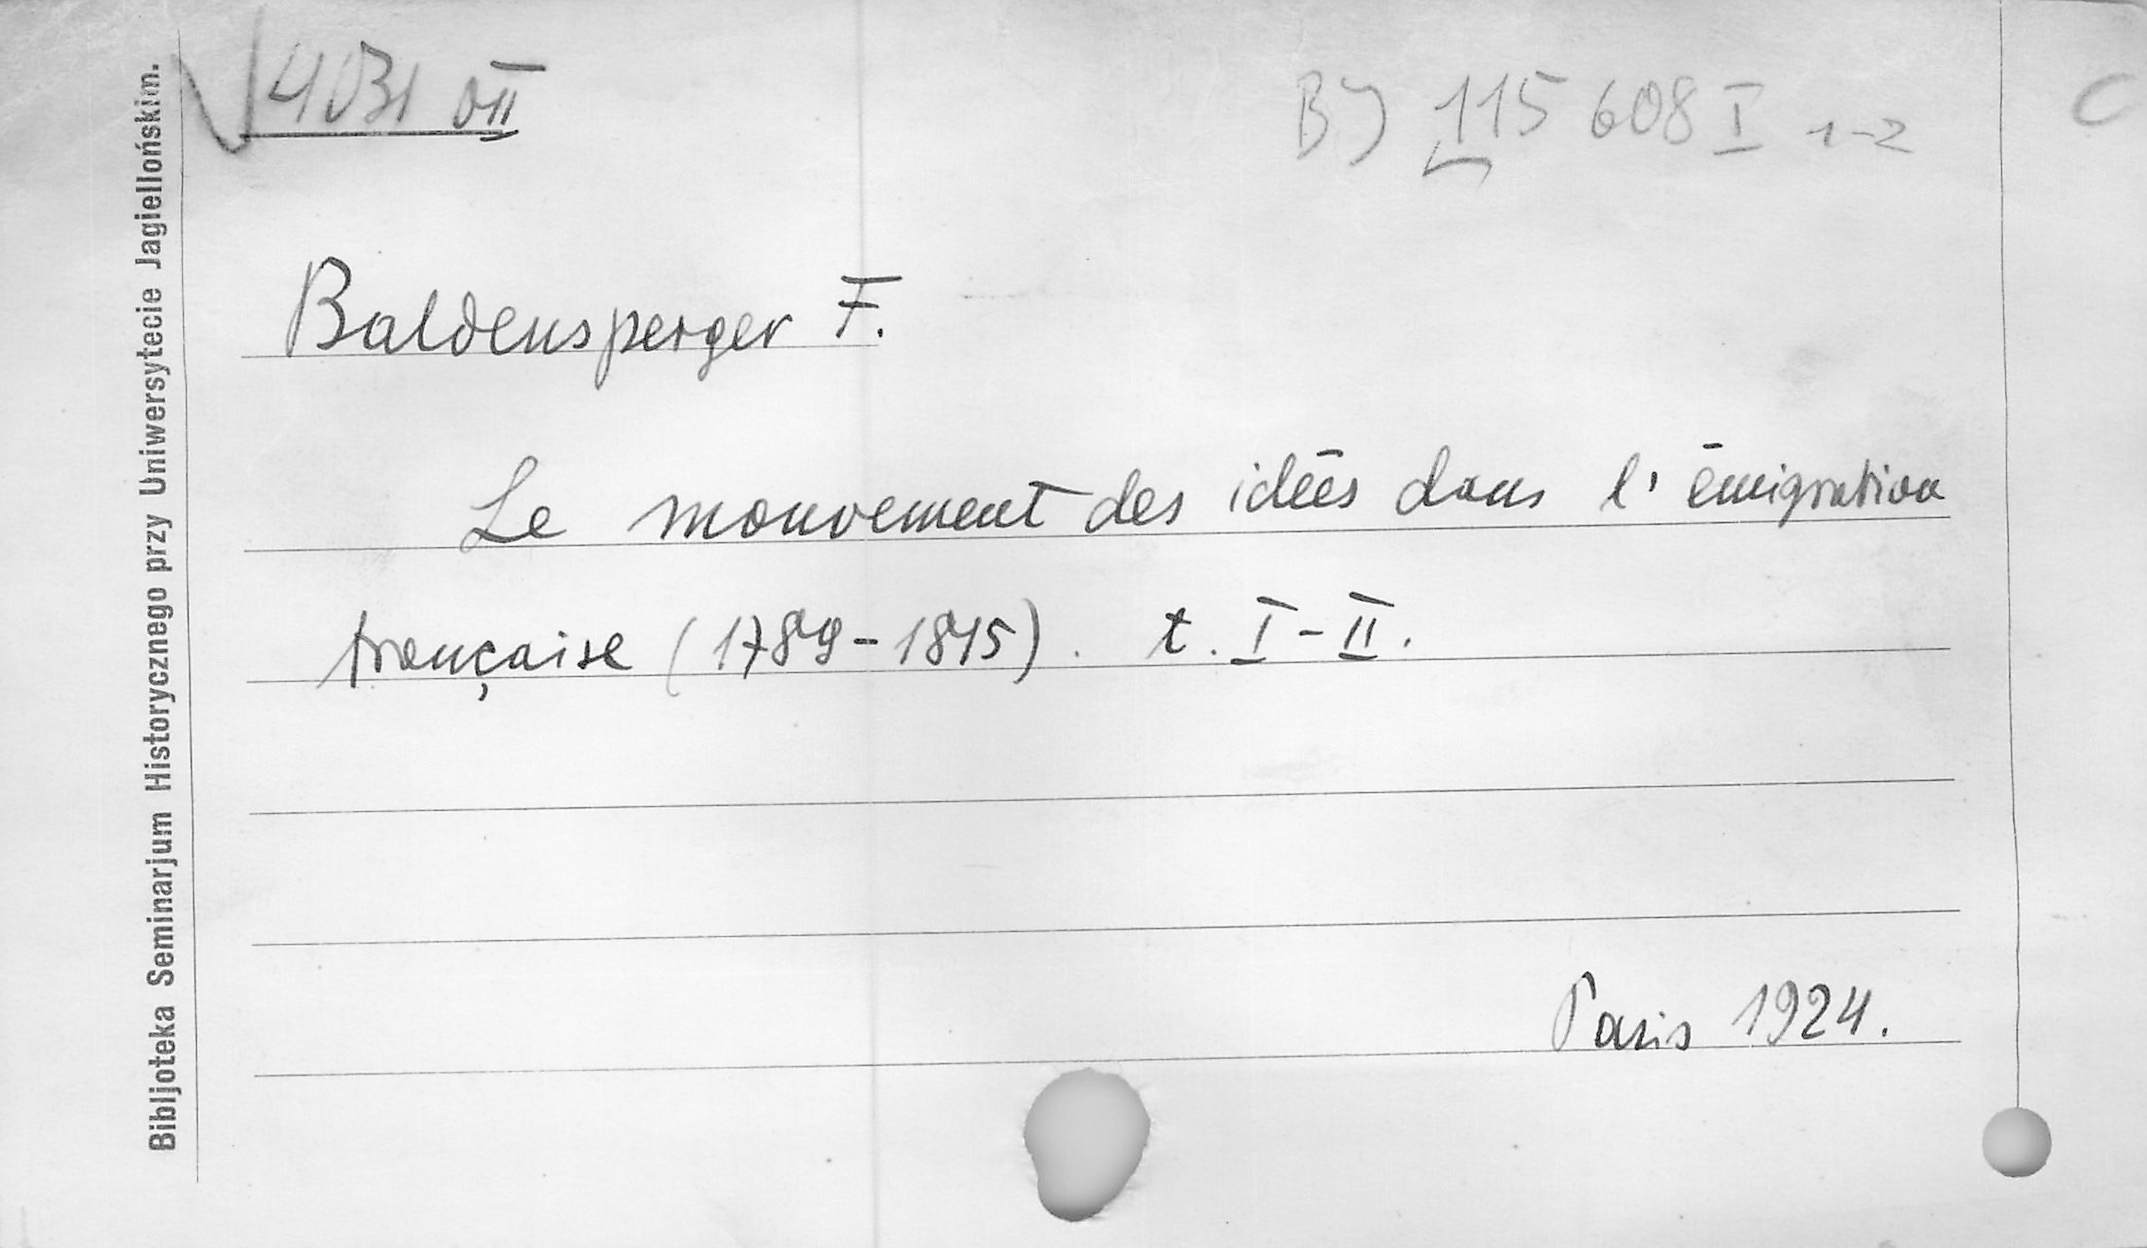 4031 II
BJ 115 608 I 1-2
C
Baldensperger F.
Le mouvement des idées dans l'émigration
française (1789-1815). t. I-II.
Paris 1924.
Bibljoteka Seminarjum Historycznego przy Uniwersytecie Jagiellońskim.